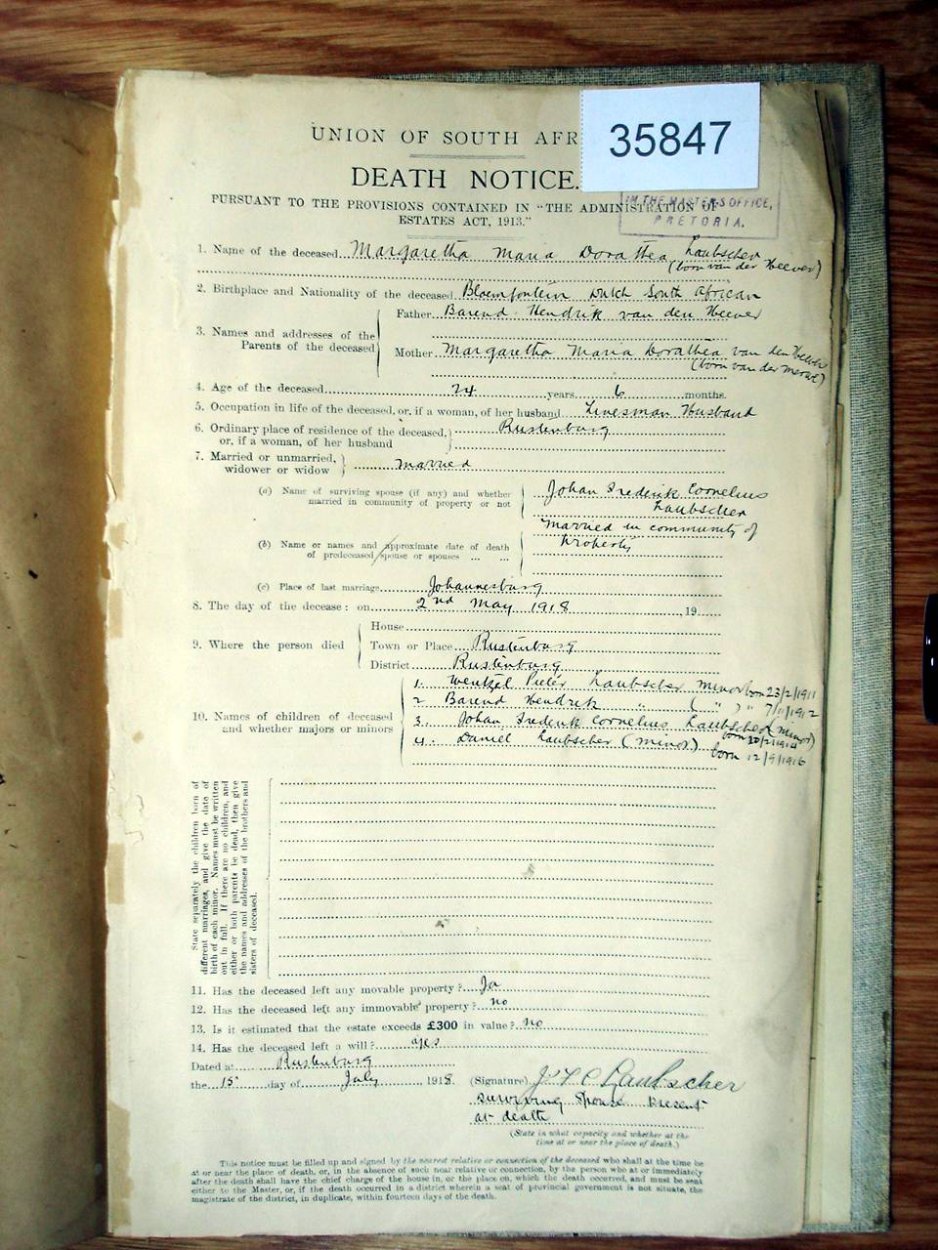 35847
UNION OF SOUTH AFR
DEATH NOTICE.
IN THE MASTER'S OFFICE,
PRETORIA.
PURSUANT TO THE PROVISIONS CONTAINED IN "THE ADMINISTRATION OF
ESTATES ACT, 1913."
1. Name of the deceased Margaretha Maria Dorathea Laubscher
(born van der Heever)
2. Birthplace and Nationality of the deceased Bloemfontein Dutch South African
3. Names and addresses of the Parents of the deceased
Father Barend Hendrik van den Heever
Mother Margaretha Maria Dorathea van den Heever
(born van der Merwe)
4. Age of the deceased 24 years 6 months.
5. Occupation in life of the deceased, or, if a woman, of her husband Linesman Husband
6. Ordinary place of residence of the deceased, Rustenburg
or, if a woman, of her husband
7. Married or unmarried, married
widower or widow
(a) Name of surviving spouse (if any) and whether
married in community of property or not
Johan Frederik Cornelius
Laubscher
married in community of
Property
(b) Name or names and approximate date of death
of predeceased spouse or spouses ... ...
(c) Place of last marriage Johannesburg
8. The day of the decease: on 2nd May 1918, 19
9. Where the person died
House
Town or Place Rustenburg
District Rustenburg
10. Names of children of deceased
and whether majors or minors
1. Wentzel Pieter Laubscher minor born 23/2/1911
2 Barend Hendrik " ( " ) " 7/11/1912
3. Johan Frederik Cornelius Laubscher (minor)
born 20/2/1914
4. Daniel Laubscher (minor) born 12/9/1916
State separately the children born of
different marriages, and give the date of
birth of each minor. Names must be written
out in full. If there are no children, and
either or both parents be dead, then give
the names and addresses of the brothers and
sisters of deceased.
11. Has the deceased left any movable property? Ja
12. Has the deceased left any immovable property? no
13. Is it estimated that the estate exceeds £300 in value? no
14. Has the deceased left a will? yes
Dated at Rustenburg
the 15 day of July, 1918.
(Signature) J F C Laubscher
surviving Spouse Present
at death
(State in what capacity and whether at the
time at or near the place of death.)
This notice must be filled up and signed by the nearest relative or connection of the deceased who shall at the time be
at or near the place of death, or, in the absence of such near relative or connection, by the person who at or immediately
after the death shall have the chief charge of the house in, or the place on, which the death occurred, and must be sent
either to the Master, or, if the death occurred in a district wherein a seat of provincial government is not situate, the
magistrate of the district, in duplicate, within fourteen days of the death.